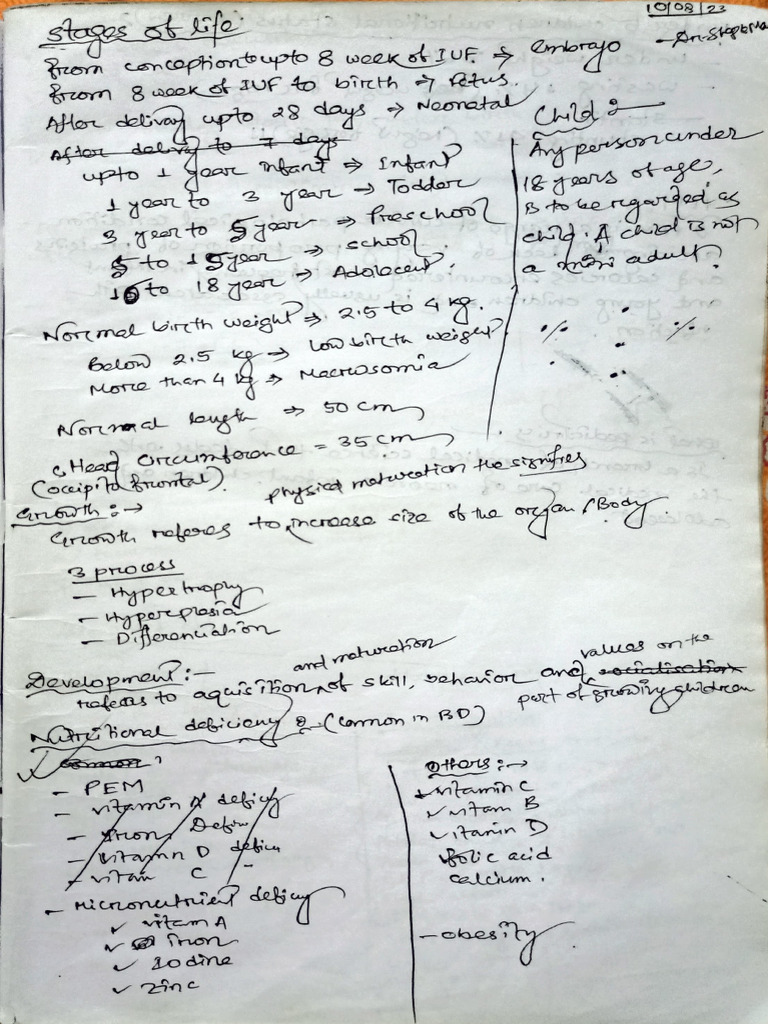 10/08/23
Stages of life
from conception to upto 8 week of IUF. → embrayo
from 8 week of IUF to birth → Fetus.
After delivary upto 28 days → Neonatal
After delivay to 7 days
upto 1 year infant → Infant
1 year to 3 year → Todder
3 year to 5 year → Preschool
5 to 15 year → school
16 to 18 year → Adolecent.
Child :-
Any person under
18 years of age,
is to be regarded as
child. A child is not
a mini adult.
Normal birth weight → 2.5 to 4 kg.
Below 2.5 kg → low birth weight
More than 4 kg → Macrosomia
Normal length → 50 cm
Head circumference = 35 cm
(occipito frontal).
Growth :→
physical maturation the signifies
Growth referes to increase size of the organ / Body.
3 process
- Hypertrophy
- Hyperplasia
- Differenciation
Development :-
and maturation
values on the
referes to aquisition of skill, behavior and socialisation
part of growing children
Nutritional deficieny : (common in BD)
common :
- PEM
- vitamin A deficy
- Iron Defin
- vitamn D defien
- vitam C "
- Micronutrient deficy
✓ vitam A
✓ Iron
✓ Iodine
✓ zinc
Others :→
✓ vitamin C
✓ vitam B
✓ vitamin D
folic acid
calcium.
- obesity